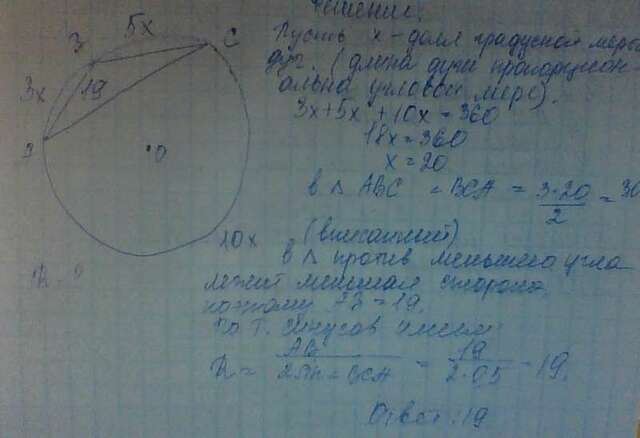 Решение.
5x
С
3x
19
O
10x
Пусть x - доля градусной меры
дуг. (длина дуги пропорцион-
альна угловой мере).
3x+5x+10x=360
18x=360
x=20
в △ ABC ∠BCA = 3·20/2 = 30
(вписанный)
в △ против меньшего угла
лежит меньшая сторона
поэтому AB = 19.
По т. синусов имеем
R = AB/2sin∠BCA = 19/2·05 = 19.
Ответ: 19